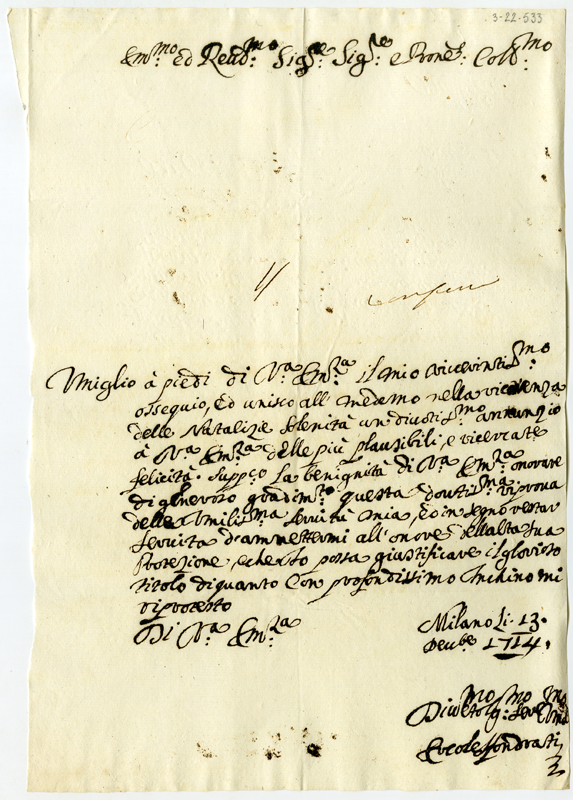 3-22-533
Em:mo ed Reud:mo Sig:re Sig:re e Prone: Coll:mo
Vmiglio à piedi di V:a Em:za il mio riuerintiss:mo
ossequio, ed unisco all' medemo nella vicorenza
delle Natalizie solenità un diuotiss:mo annunzio
à V:a Em:za delle più plausibili, e ricercate
felicità. Supp:co la benignità di V:a Em:za onorare
di generoso gradim:to questa douutiss:ma riproua
della Vmiliss:ma seruitù mia, ed in segno restar
seruita d'ammettermi all' onore dell'alta sua
Protezione, e che Io possa giustificare il glorioso
titolo di quanto Con profondissimo Inchino mi
riprotesto
Di V:a Em:za
Milano Li. 13.
Decēbe 1714.
Ercole Sfondrati